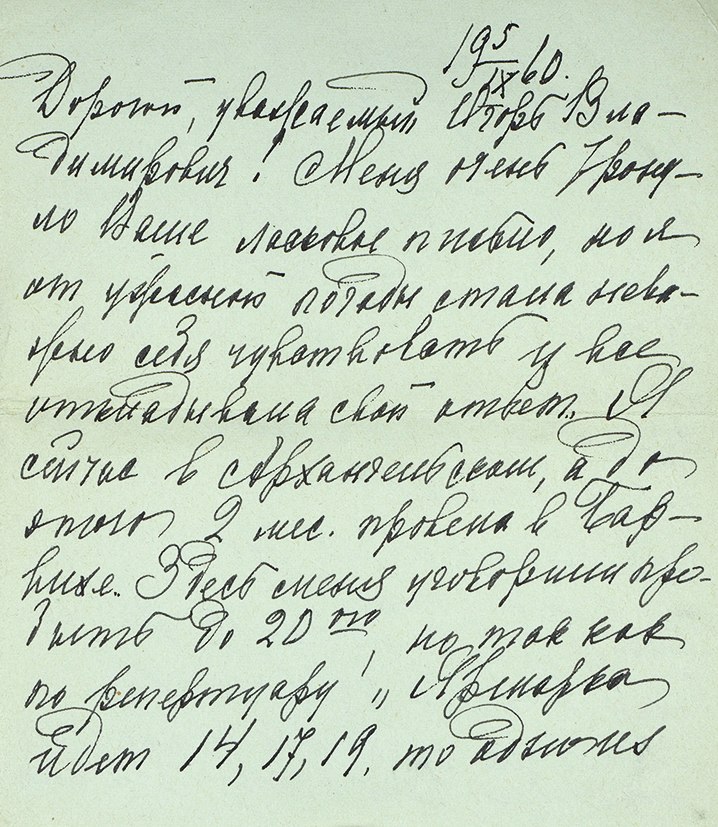 19 5/IX 60.
Дорогой, уважаемый Игорь Вла-
димирович! Меня очень трону-
ло Ваше ласковое письмо, но я
от ужасной погоды стала нева-
жно себя чувствовать и все
откладывала свой ответ. Я
сейчас в Архангельском, а до
этого 2 мес. провела в Бар-
вихе. Здесь меня уговорили про-
быть до 20го, но так как
по репертуару „Ярмарка
идет 14, 17, 19, то